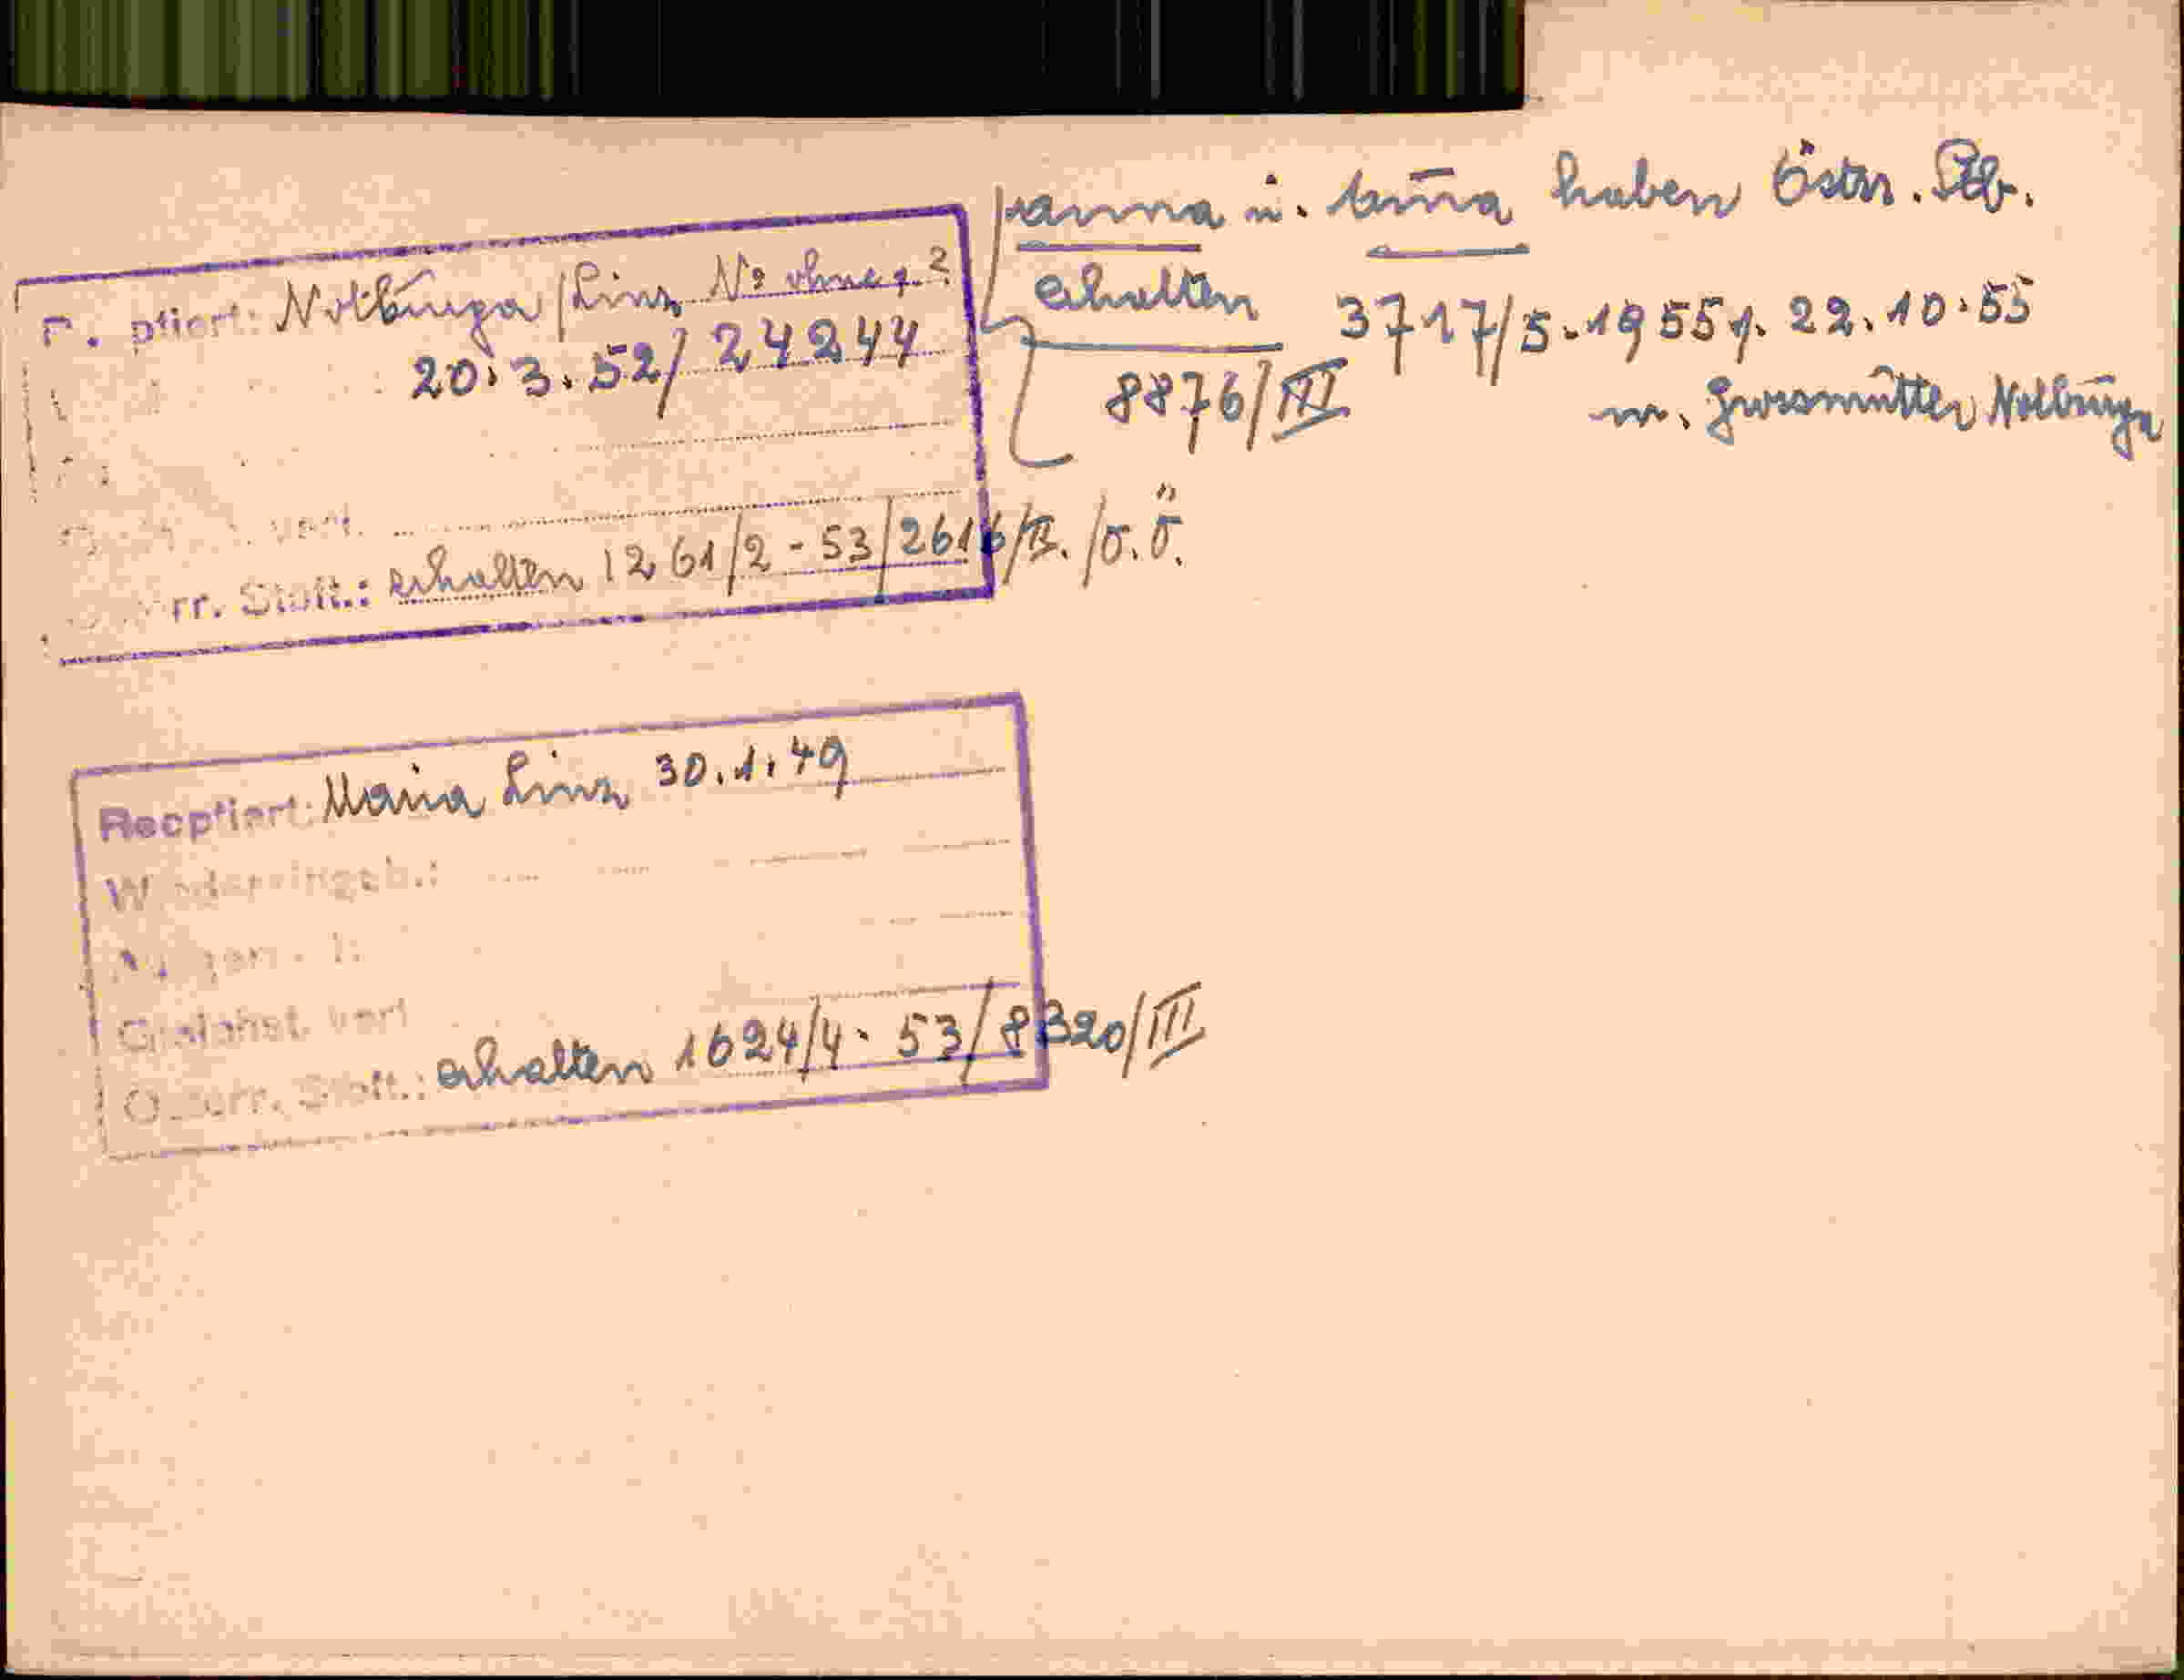 Notburga/Linz No ohne g.?
20.3.52/24244
vert.
rr. Stbft.: erhalten 1261/2-53/2616/II./O.Ö.
anna u. haben Östr. Stb.
erhalten 3717/5.1955 v. 22.10.55
8876/III m. Grossmutter Notburga
Reoptiert: Maria Linz 30.1.49
Wiedereingeb.:
Gnalohst. vert
Österr. Stbft.: erhalten 1624/4.53/8320/III